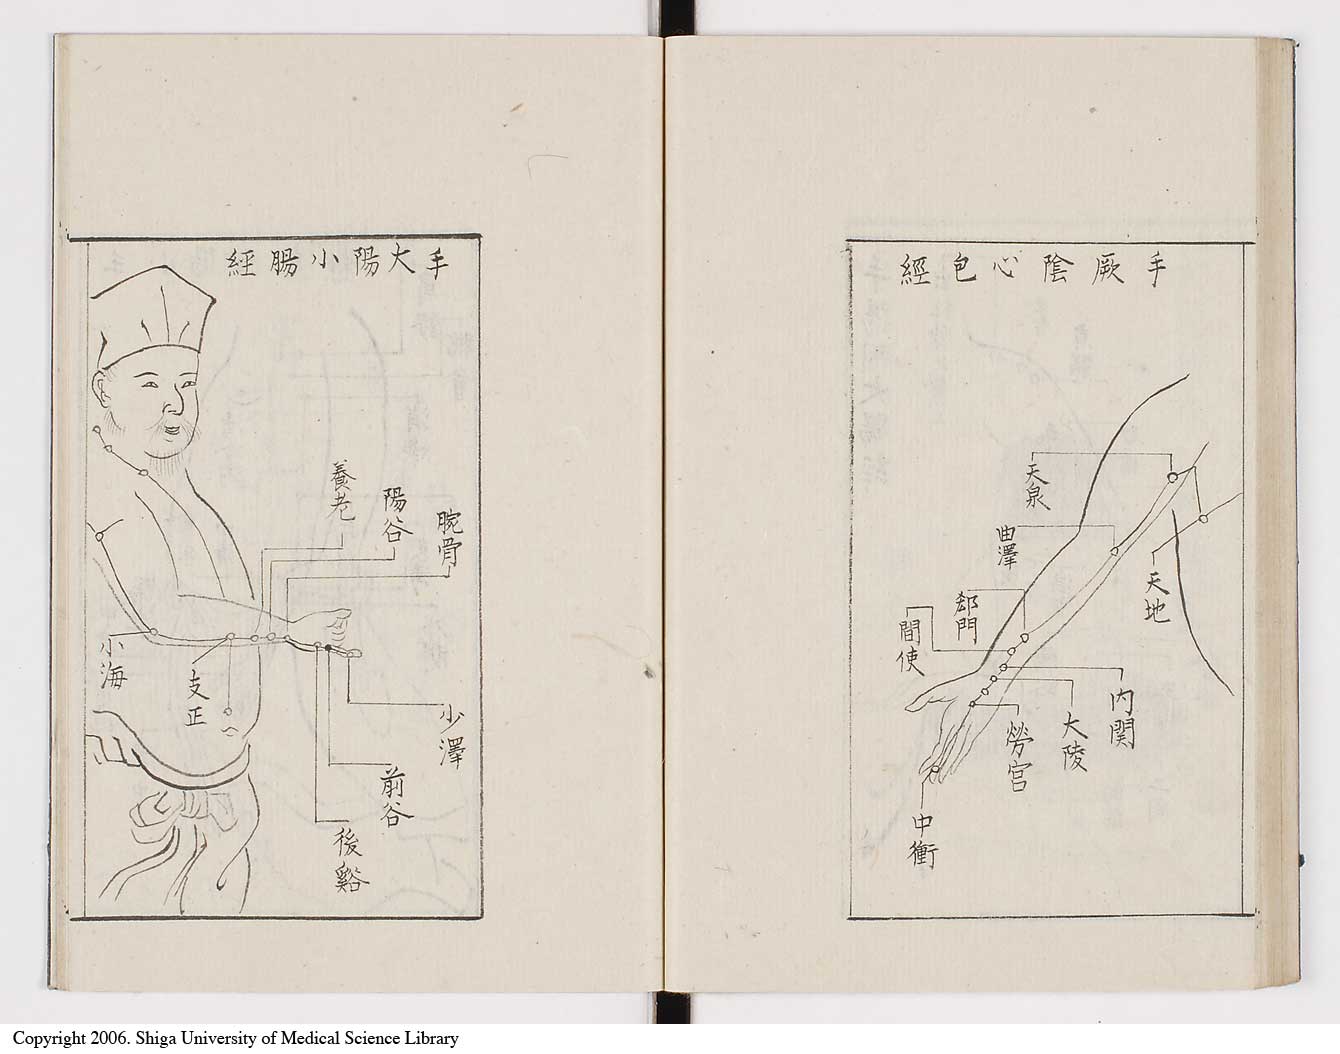 手厥陰心包經
天泉
曲澤
天地
郄門
間使
内関
大陵
勞宮
中衝
手大陽小腸經
養老
陽谷
腕骨
小海
支正
少澤
前谷
後谿
Copyright 2006. Shiga University of Medical Science Library